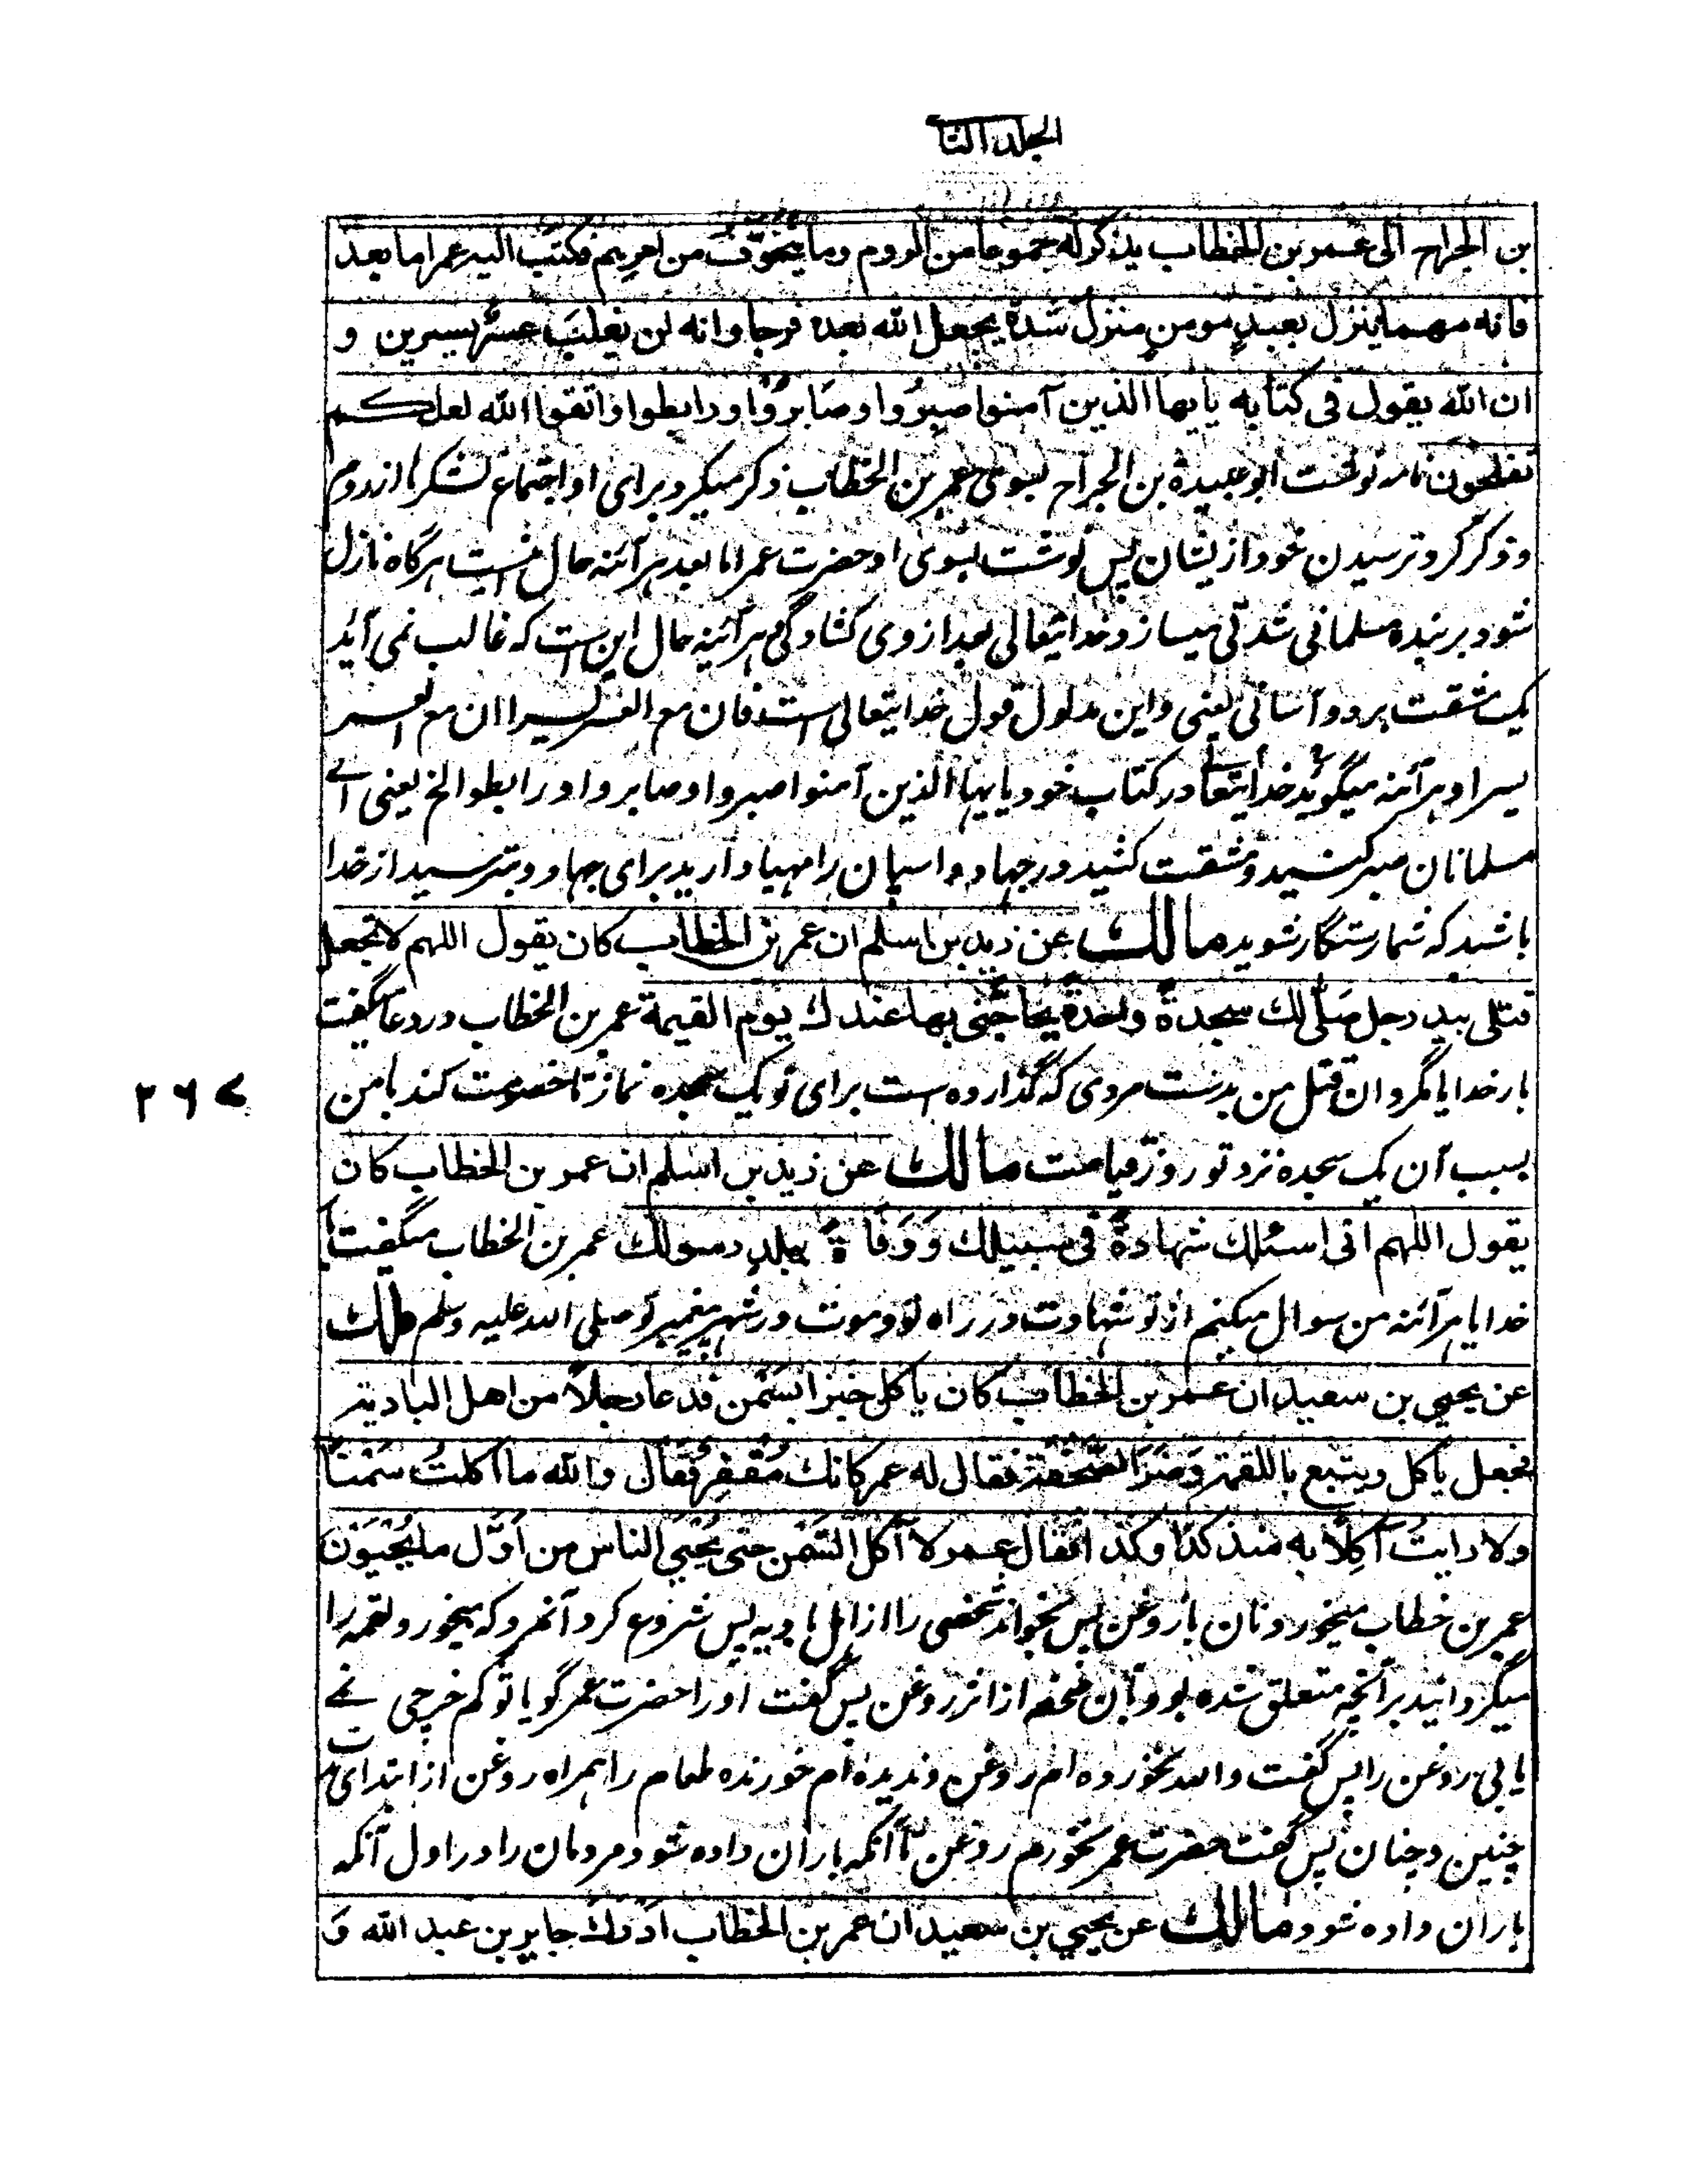 الجلد الثا
بن الجراح الى عمر بن الخطاب يذكر له جموعا من الروم وما يتخوف من امرهم فكتب اليه عمر اما بعد
فانه مهما ينزل بعبد مومن منزل شدة يجعل الله بعده فرجا وانه لن يغلب عسر يسيرين و
ان الله يقول فى كتابه يايها الذين آمنوا اصبروا وصابروا ورابطوا واتقوا الله لعلكم
تفلحون نامه نوشت ابو عبيدة بن الجراح بسوى عمر بن الخطاب ذكر ميكرد براى او اجتماع لشكرها از روم
و ذكر كرد ترسيدن خود از يشان پس نوشت بسوى او حضرت عمر اما بعد هرآئنه حال اينست هرگاه نازل
شود بر بنده مسلمانى شدتى ميسازد خدايتعالى بعد از وى كشادگى و هرآئينه حال اين است كه غالب نمى آيد
يك مشقت بر دو آسانى يعنى و اين مدلول قول خدايتعالى است فان مع العسر يسرا ان مع العسر
يسرا و هرآئنه ميگويد خدايتعا در كتاب خود يايها الذين آمنوا اصبروا وصابروا ورابطوا الخ يعنى اے
مسلمانان صبر كنيد و مشقت كشيد در جهاد و اسپان را مهيا داريد براى جهاد و بترسيد از خدا
باشد كه شما رستگار شويد مالك عن زيد بن اسلم ان عمر بن الخطاب كان يقول اللهم لا تجعل
قتلى بيد رجل صلى لك سجدة واحدة يحاجنى بها عندك يوم القيمة عمر بن الخطاب در دعا ميگفت
بار خدايا مگردان قتل من بدست مردى كه گذارده است براى تو يك سجده نماز تا خصومت كند با من
بسبب آن يك سجده نزد تو روز قيامت مالك عن زيد بن اسلم ان عمر بن الخطاب كان
يقول اللهم انى اسئلك شهادة فى سبيلك وَوَفَاةً ببلد رسولك عمر بن الخطاب ميگفت با
خدايا هرآئنه من سوال ميكنم از تو شهادت در راه تو و موت در شهر پيغمبر تو صلى الله عليه وسلم مالك
عن يحيي بن سعيد ان عمر بن الخطاب كان ياكل خبزا بسمن فدعا رجلا من اهل البادية
فجعل ياكل ويتبع باللقمة وَضَرَ الصَّحْفَة فقال له عمر كانك مُقْفِر فقال والله ما اكلت سَمْناً
ولا رايتُ آكِلًا به منذ كذا وكذا فقال عمر لا آكل السَّمْن حتى يُحْيَي الناس من اَوَّل ما يُحْيَوْن
عمر بن خطاب ميخورد نان با روغن پس بخواند شخصى را از اهل باديه پس شروع كرد آنمرد كه ميخورد و لقمه را
ميگردانيد بر آنچه متعلق شده بود بآن صحفه از اثر روغن پس گفت او را حضرت عمر گويا تو كم خرچى نمے
يابى روغن را پس گفت والله نخورده ام روغن و نديده ام خورنده طعام را همراه روغن از ابتداى مدت
چنين و چنان پس گفت حضرت عمر نخورم روغن تا آنكه باران داده شود مردمان را در اول آنكه
باران داده شود مالك عن يحيي بن سعيد ان عمر بن الخطاب ادرك جابر بن عبد الله وَ
۲۶۷